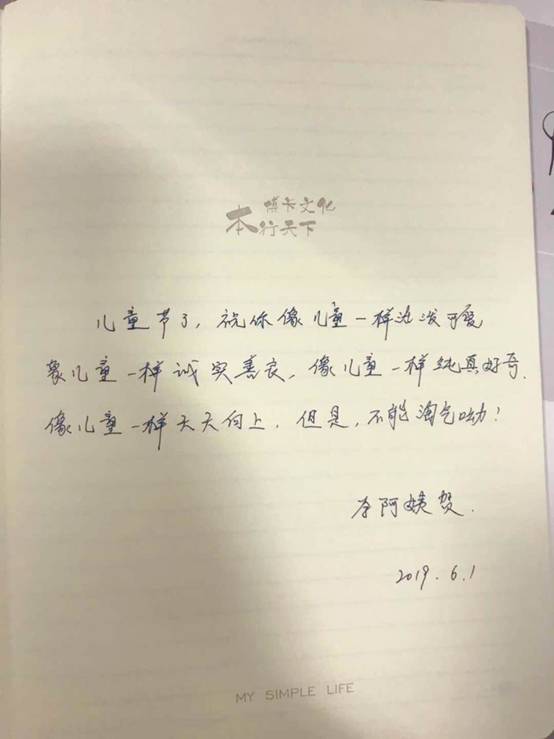 博卡文化
本行天下
儿童节了，祝你像儿童一样活泼可爱
象儿童一样诚实善良、像儿童一样纯真好奇.
像儿童一样天天向上.但是,不能淘气呦!
李阿姨贺.
2019.6.1
MY SIMPLE LIFE